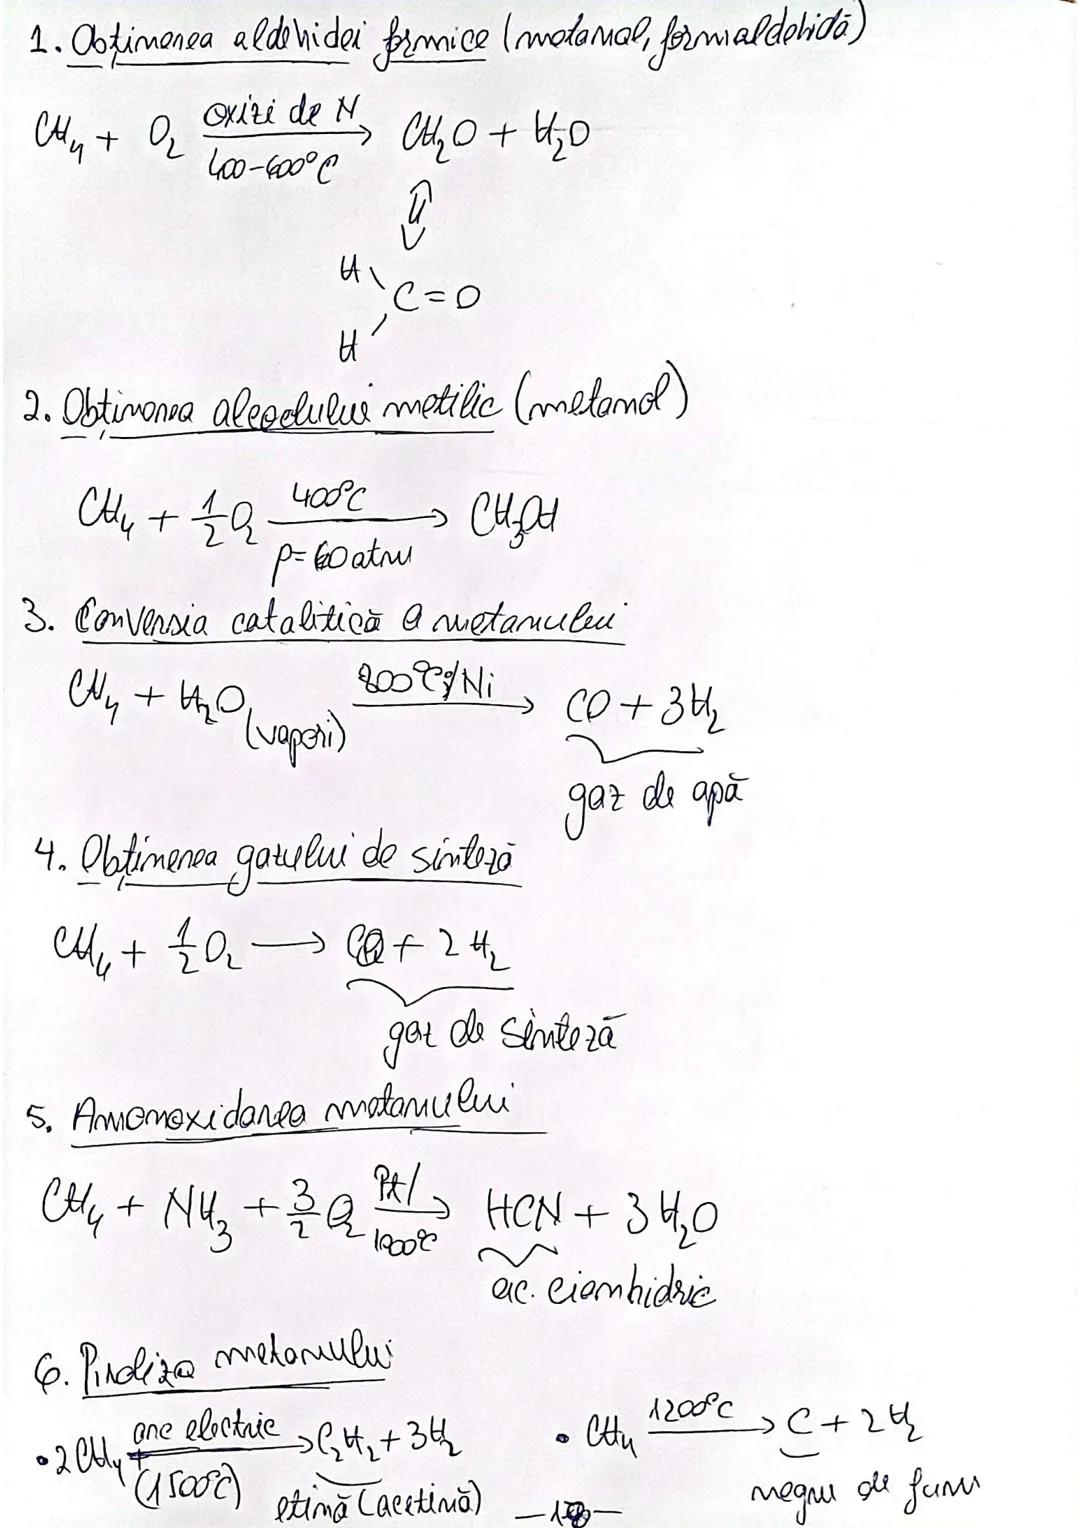 1. Obținerea aldehidei formice (metanal, formaldehidă)
CH₄ + O₂ oxizi de N 400-600°C → CH₂O + H₂O
⇕
H
C=O
H
2. Obținerea alcoolului metilic (metanol)
CH₄ + 1/2 O₂ 400°C p=60 atm → CH₃OH
3. Conversia catalitică a metanului
CH₄ + H₂O (vapori) 800°C/Ni → CO + 3H₂
gaz de apă
4. Obținerea gazului de sinteză
CH₄ + 1/2 O₂ → CO + 2H₂
gaz de sinteză
5. Amonoxidarea metanului
CH₄ + NH₃ + 3/2 O₂ Pt/ 1000°C → HCN + 3H₂O
ac. cianhidric
6. Piroliza metanului
• 2CH₄ arc electric (1500°C) → C₂H₂ + 3H₂ • CH₄ 1200°C → C + 2H₂
etină (acetină) negru de fum